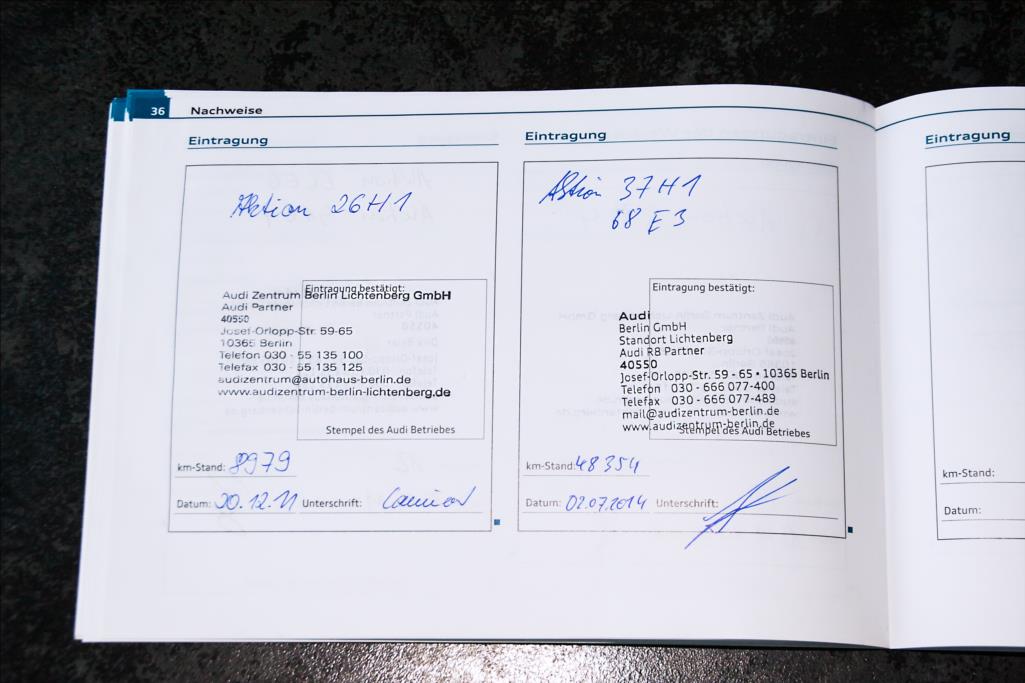 36 Nachweise
Eintragung
Aktion 26H1
Eintragung bestätigt:
Audi Zentrum Berlin Lichtenberg GmbH
Audi Partner
40550
Josef-Orlopp-Str. 59-65
10365 Berlin
Telefon 030 - 55 135 100
Telefax 030 - 55 135 125
audizentrum@autohaus-berlin.de
www.audizentrum-berlin-lichtenberg.de
Stempel des Audi Betriebes
km-Stand: 8979
Datum: 20.12.11 Unterschrift:
Eintragung
Aktion 37H1
68 E3
Eintragung bestätigt:
Audi
Berlin GmbH
Standort Lichtenberg
Audi R8 Partner
40550
Josef-Orlopp-Str. 59 - 65 • 10365 Berlin
Telefon 030 - 666 077-400
Telefax 030 - 666 077-489
mail@audizentrum-berlin.de
www.audizentrum-berlin.de
Stempel des Audi Betriebes
km-Stand: 48354
Datum: 02.07.2014 Unterschrift:
Eintragung
km-Stand:
Datum: